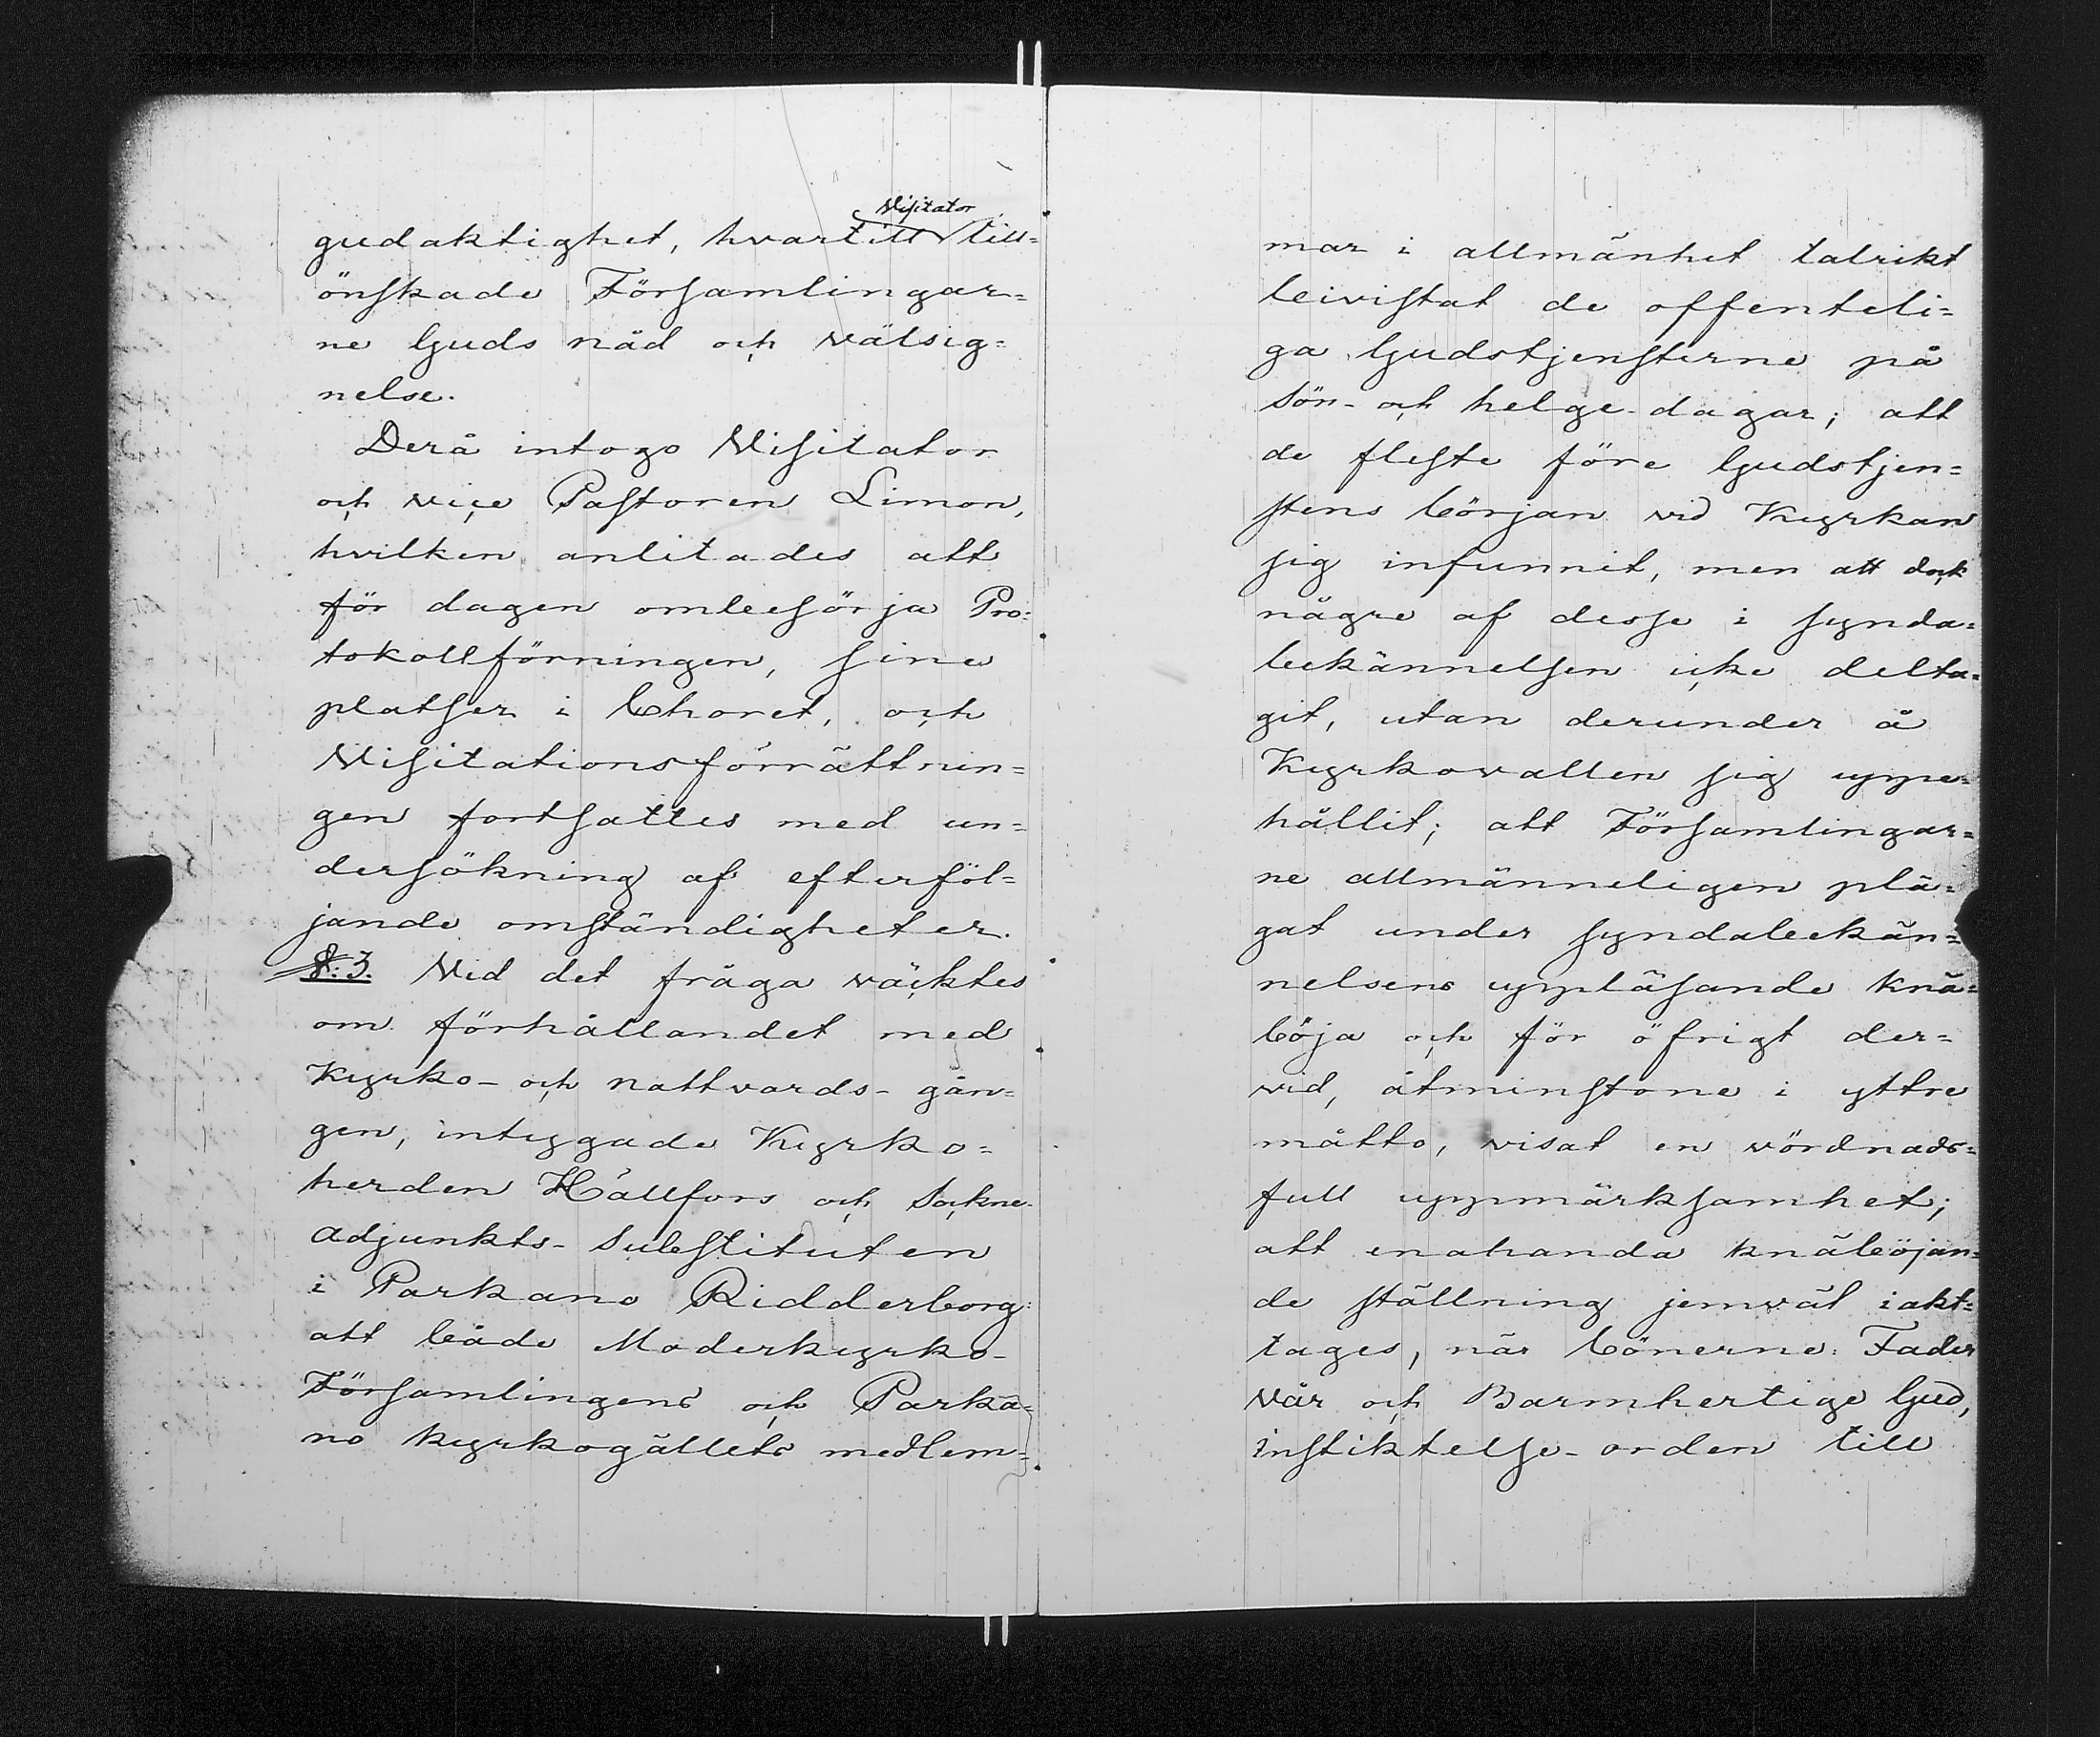 Visitator
gudaktighet, hvartill till=
önskade Församlingar=
ne Guds nåd och välsig=
nelse.
Derå intogo Visitator
och vice Pastoren Limon,
hvilken anlitades att
för dagen ombesörja Pro=
tokollförningen, sine
platser i Choret, och
Visitationsförrättnin=
gen fortsattes med un=
dersökning af efterföl=
jande omständigheter.
§. 3. Vid det fråga väcktes
om förhållandet med
Kyrko- och nattvards-gån=
gen, intygade Kyrko=
herden Hällfors och Sockne-
adjunkts-Substituten
i Parkano Ridderborg:
att både Moderkyrko-
Församlingens och Parka=
no kyrkogällets medlem=
mar i allmänhet talrikt
beivistat de offenteli=
ga Gudstjensterne på
Sön- och helge-dagar; att
de fleste före Gudstjen=
stens början vid Kyrkan
sig infunnit, men att dock
någre af desse i synda=
bekännelsen icke delta=
git, utan derunder å
Kyrkovallen sig uppe=
hållit; att Församlingar=
ne allmänneligen plä=
gat under syndabekän=
nelsens uppläsande knä=
böja och för öfrigt der=
vid, åtminstone i yttre
måtto, visat en vördnads=
full uppmärksamhet;
att enahanda knäböjan=
de ställning jemväl iakt=
tages, när bönerne: Fader
vår och Barmhertige Gud,
instiktelse-orden till